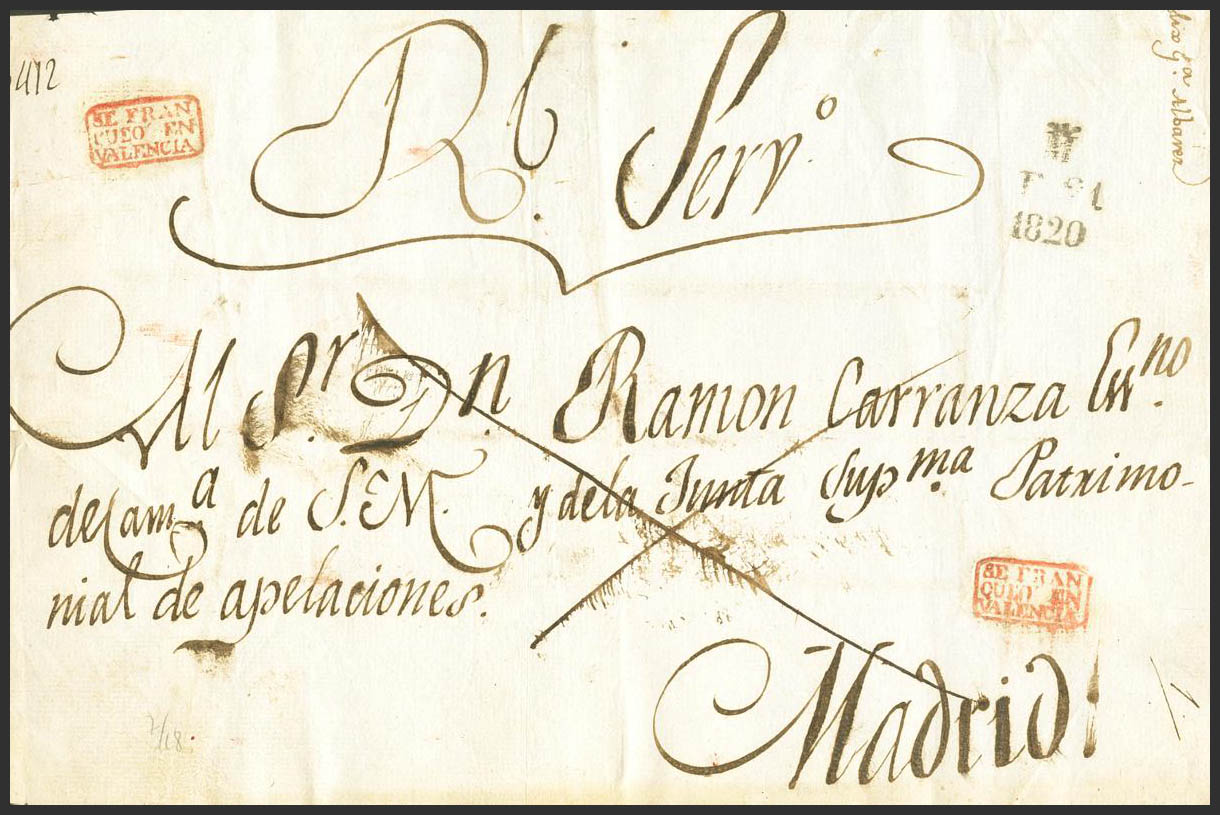 412
SE FRAN
QUEO EN
VALENCIA
Rl. Servo.
1820
Al Sr. Dn. Ramon Carranza Esno.
de Cama. de S.M. y de la Junta Supma. Patrimo-
nial de apelaciones.
SE FRAN
QUEO EN
VALENCIA
Madrid.